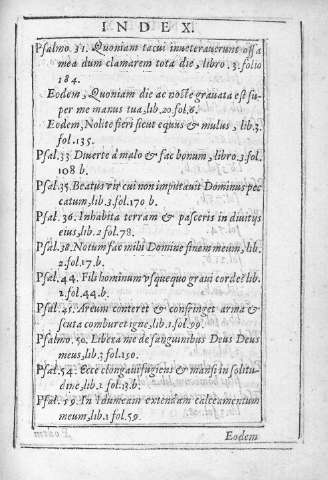 INDEX.
Psalmo. 31. Quoniam tacui inueterauerunt ossa
mea dum clamarem tota die, libro. 3. folio
184.
Eodem, Quoniam die ac nocte grauata est su-
per me manus tua, lib. 20. fol. 6.
Eodem, Nolite fieri sicut equus & mulus, lib. 3.
fol. 135.
Psal. 33 Diuerte à malo & fac bonum, libro. 3. fol.
108 b.
Psal. 35. Beatus vir cui non imputauit Dominus pec
catum, lib. 3. fol. 170 b.
Psal. 36. Inhabita terram & pasceris in diuitijs
eius, lib. 2 fol. 78.
Psal. 38. Notum fac mihi Domine finem meum, lib.
2. fol. 17. b.
Psal. 44. Fili hominum vsquequo graui corde? lib.
2. fol. 44. b.
Psal. 45. Arcum conteret & confringet arma &
scuta comburet igne, lib. 1. fol. 99.
Psalmo. 50. Libera me de sanguinibus Deus Deus
meus, lib. 3 fol. 150.
Psal. 54. Ecce elongaui fugiens & mansi in solitu-
dine, lib. 1 fol. 13. b.
Psal. 59. In Idumeam extendam calceamentum
meum, lib. 1 fol. 59.
Eodem